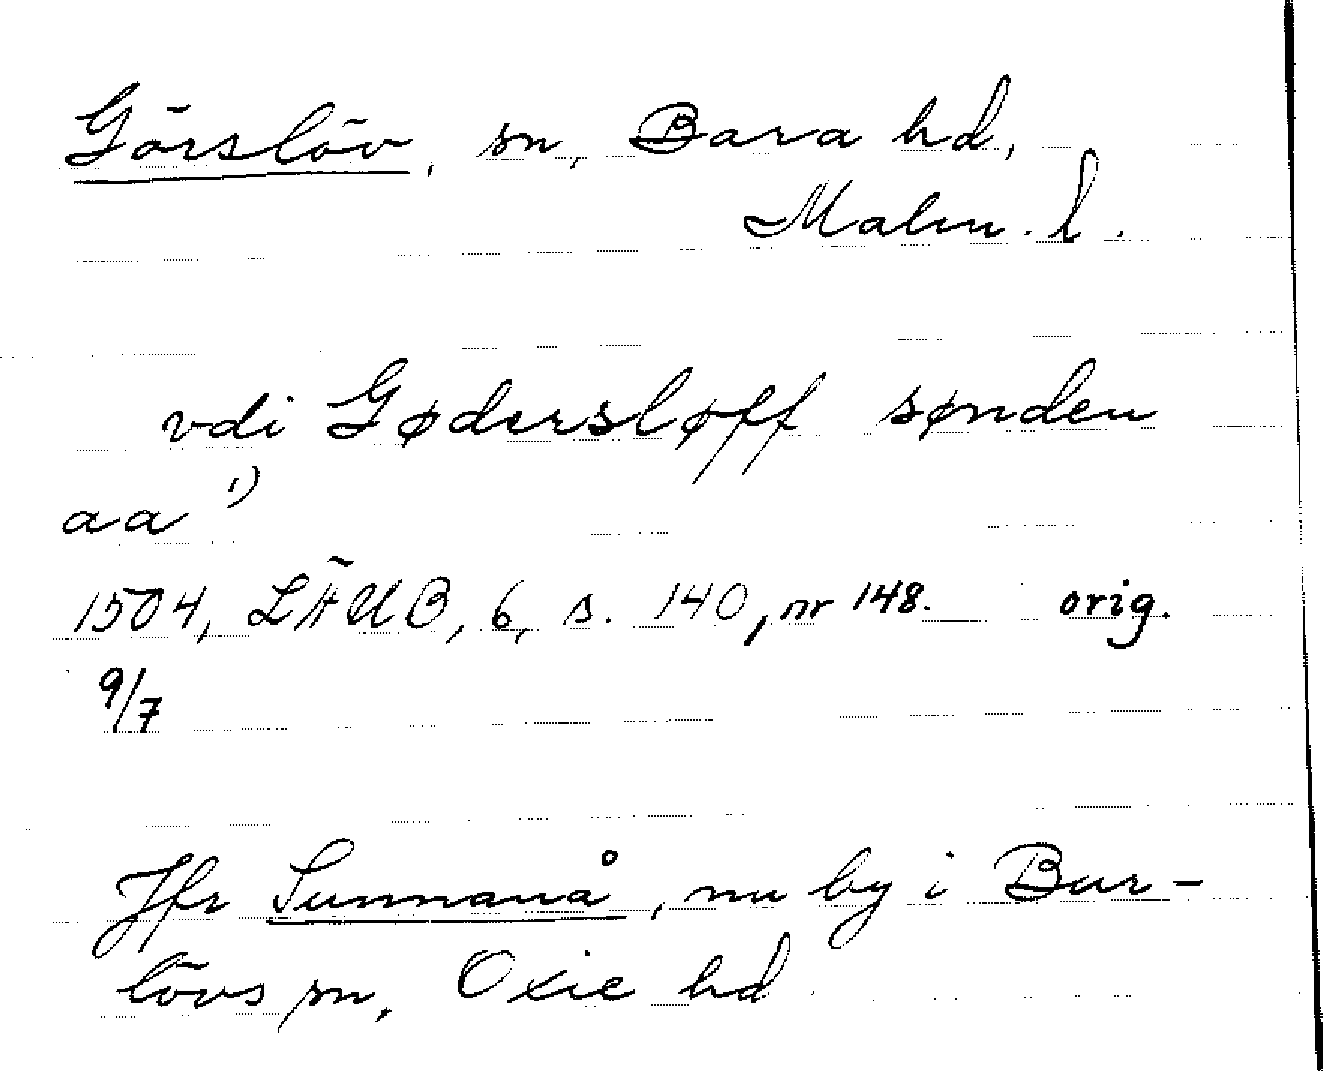 Görslöv, sn, Bara hd,
Malm. l.
vdi Gødersløff sønden
aa 1)
1504, LÄUB, 6, s. 140, nr 148. orig.
9/7
Jfr Sunnanå, nu by i Bur-
lövs sn, Oxie hd